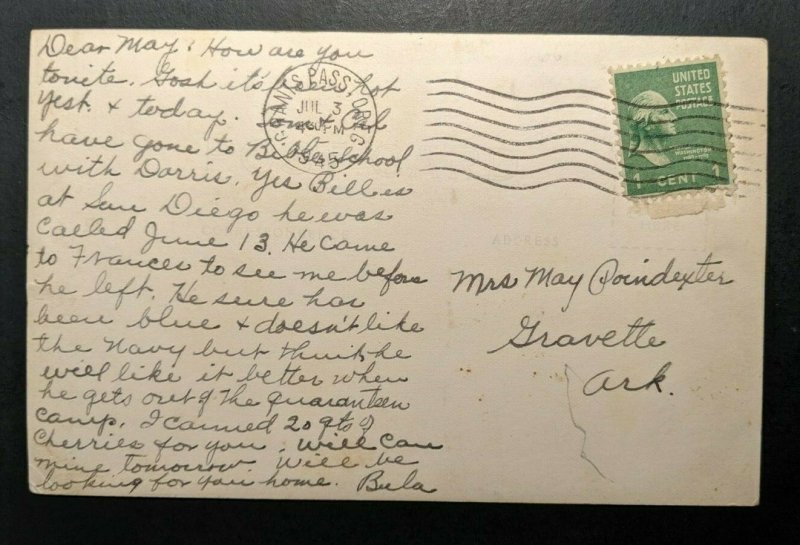 Dear May: How are you
tonite. Gosh it's been hot
yest. & today.
have gone to Bible school
with Dorris. Yes Bill is
at San Diego he was
called June 13. He came
to Frances to see me before
he left. He sure has
been blue & doesn't like
the Navy but think he
will like it better when
he gets out of the quaranteen
camp. I canned 20 qts of
Cherries for you. Will can
mine tomorrow. Will be
looking for you home. Bula
GRANTS PASS, OREG.
JUL 3
PM
UNITED
STATES
POSTAGE
WASHINGTON
1 CENT 1
ADDRESS
Mrs May Poindexter
Gravette
Ark.